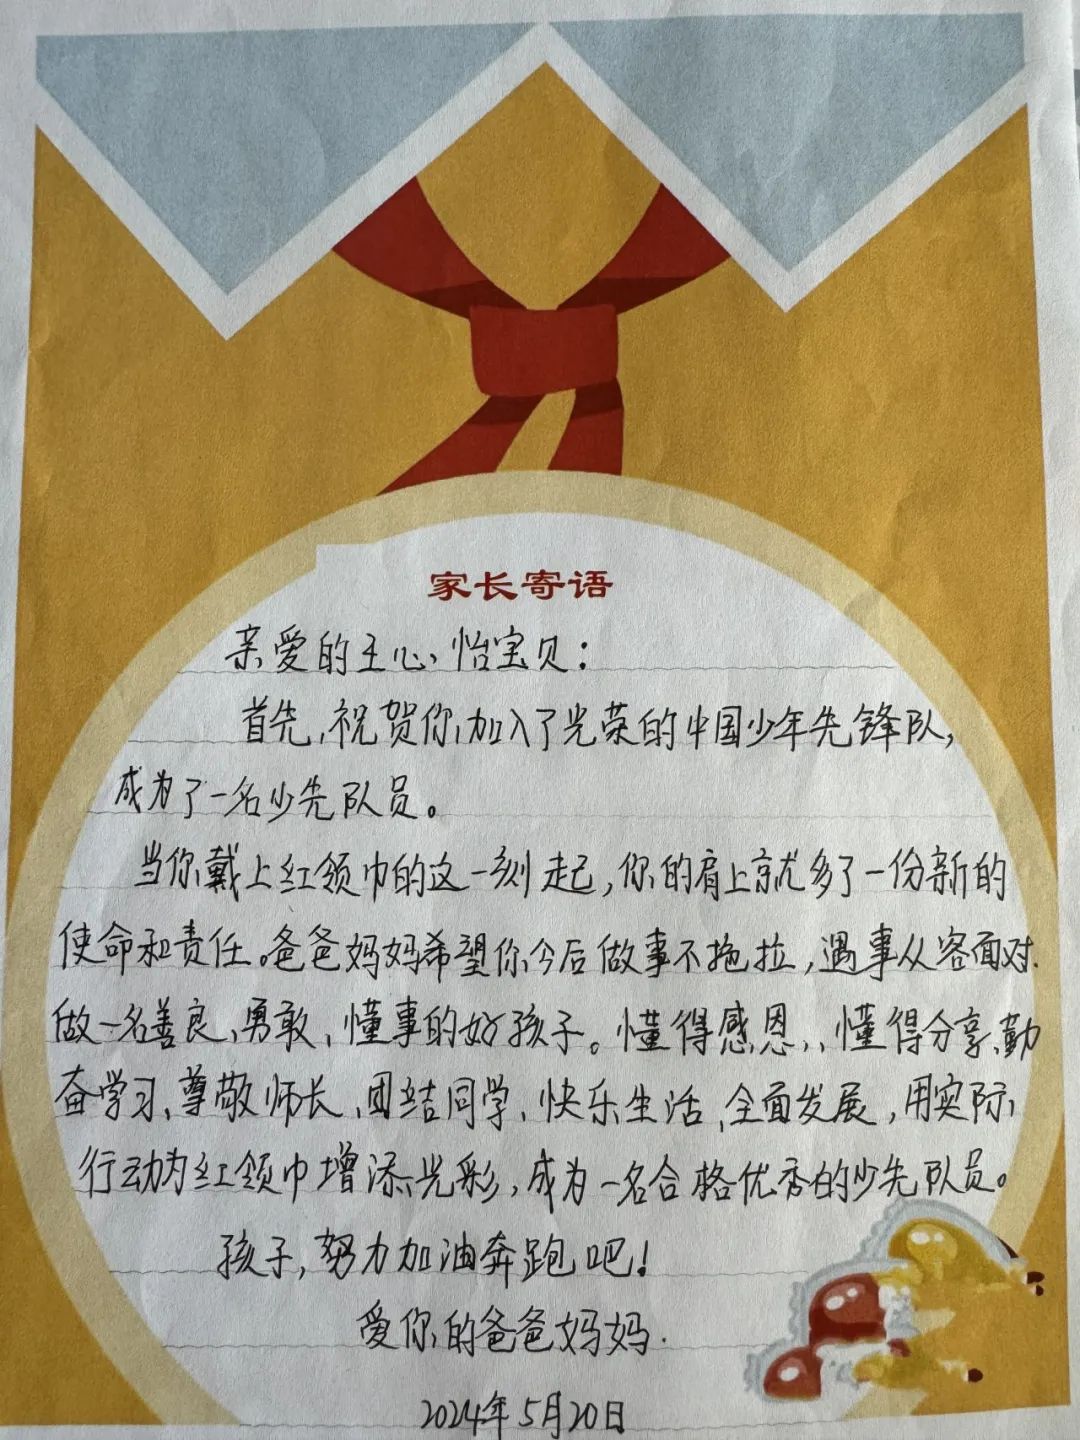 家长寄语
亲爱的王心怡宝贝：
首先,祝贺你加入了光荣的中国少年先锋队，
成为了一名少先队员。
当你戴上红领巾的这一刻起，你的肩上就多了一份新的
使命和责任。爸爸妈妈希望你今后做事不拖拉，遇事从容面对.
做一名善良、勇敢、懂事的好孩子。懂得感恩、懂得分享、勤
奋学习、尊敬师长、团结同学、快乐生活、全面发展，用实际
行动为红领巾增添光彩，成为一名合格优秀的少先队员。
孩子，努力加油奔跑吧！
爱你的爸爸妈妈.
2024年5月20日